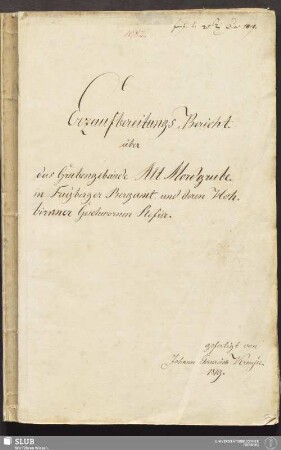 Erzaufbereitungs Bericht
über
das Grubengebäude Alt Mordgrube
in Freyberger Bergamt und deren Hoh-
birkner Geschwornen Refier.
gefertigt von
Johann
1819.
SLUB
Wir führen Wissen.